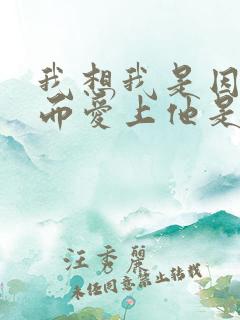 我想我是因
而爱上他是
汪秀丽
未经同意禁止转载